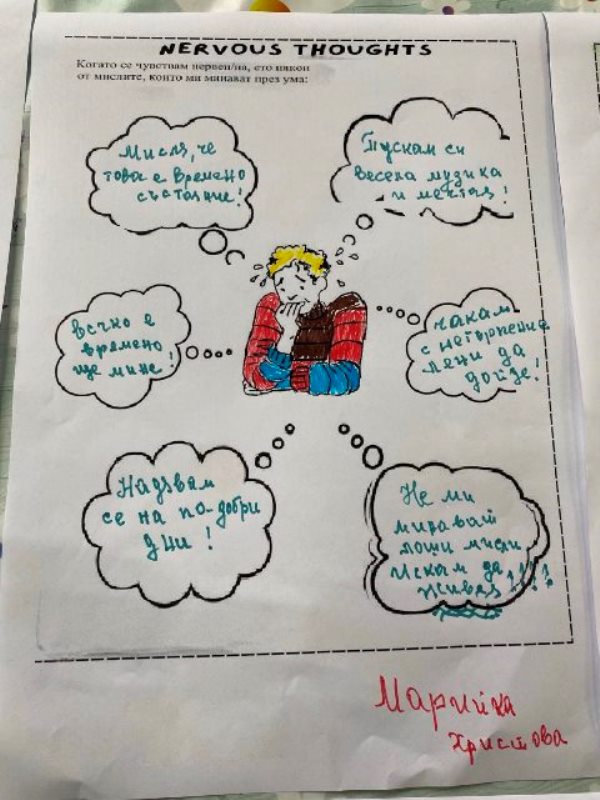 NERVOUS THOUGHTS
Когато се чувствам нервен/на, ето някои
от мислите, които ми минават през ума:
Мисля, че
това е времено
състояние!
Пускам си
весела музика
и мечтая!
всичко е
времено
ще мине!
чакам
с нетърпение
лени да
дойде!
Надявам
се на по-добри
дни!
Не ми
минавай
лоши мисли
Искам да
живея!!!!
Марийка
Христова